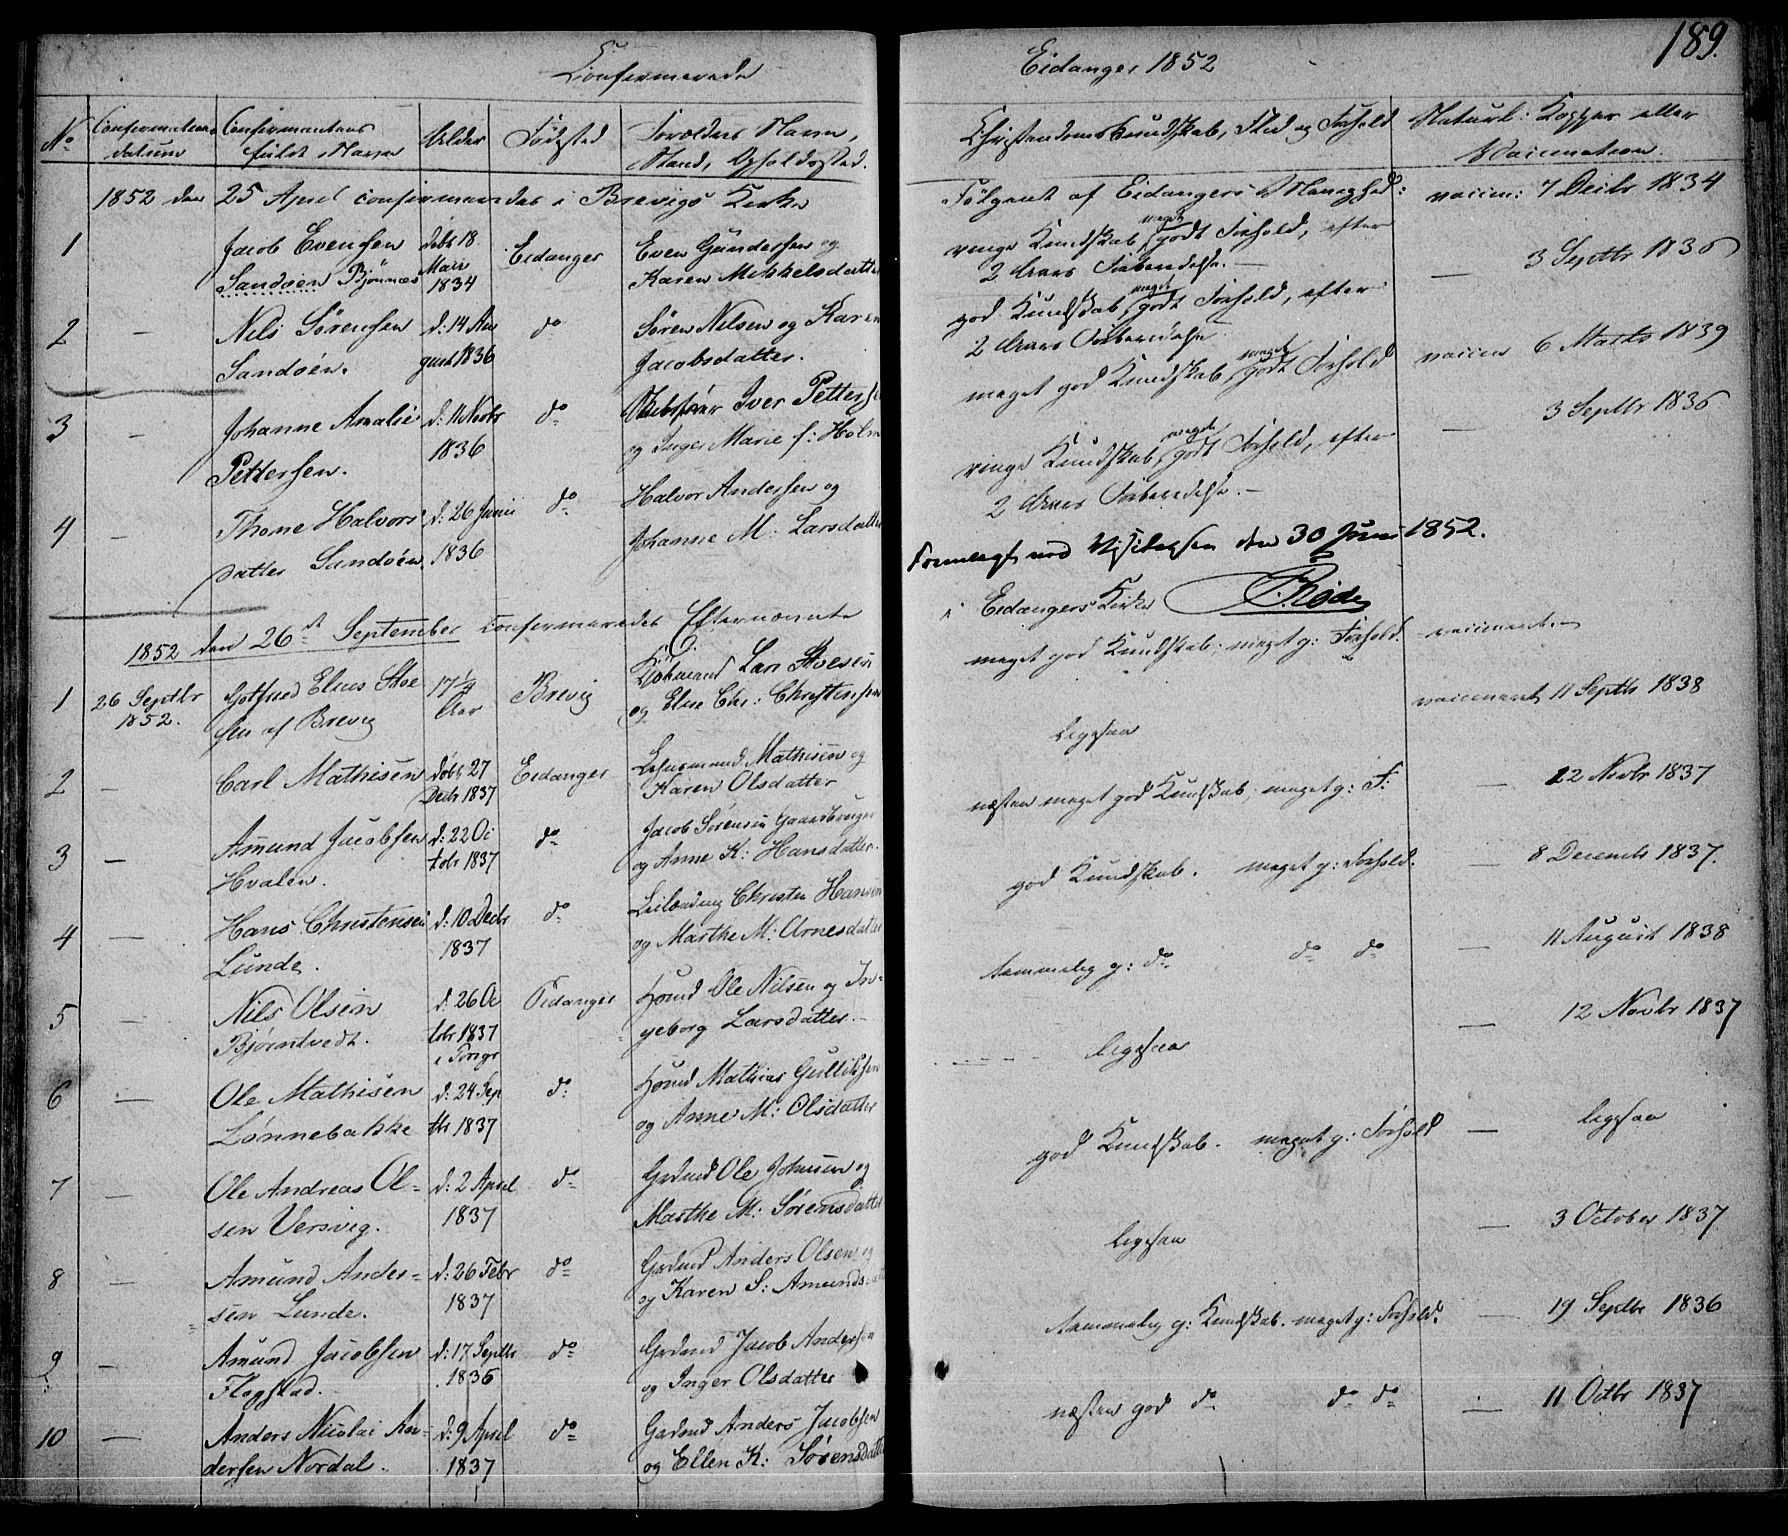 189.
Confirmerede
Eidanger 1852
No Confirmations Confirmantens Alder Fødested Forældres Navn,
datum fulde Navn Stand, Opholdssted.
Christendoms Kundskab, Flid og Forhold Naturl: Kopper eller
Vaccination.
1852 den 25 April confirmeredes i Brevigs Kirke
Følgende af Eidangers Menighed:
1 Jacob Evensen Døbt 18 Eidanger Even Gundersen og
Sandøen Bjønnes Mai 1834 Karen Mikkelsdatter
ringe Kundskab, meget godt Forhold, efter vaccin: 7 Decbr 1834
2 Aars Forberedelse.
2 — Nils Sørensen d: 14 Au do Søren Nilsen og Karen
Sandøen. gust 1836 Jacobsdatter.
god Kundskab, meget godt Forhold, efter — 3 Septbr 1836
2 Aars Forberedelse
3 — Johanne Amalie d: 11 Novbr do Skibsfører Iver Petterse
Pettersen. 1836 og Inger Marie f: Holm
meget god Kundskab, meget godt Forhold vaccin 6 Marts 1839
4 — Thone Halvors d: 26 Junii do Halvor Andersen og
datter Sandøen. 1836 Johanne M: Larsdatter
ringe Kundskab, meget godt Forhold, efter — 3 Septbr 1836
2 Aars Forberedelse.
Fremlagt ved Visitatsen den 30 Juni 1852.
i Eidangers Kirke
1852 den 26de September Confirmeredes Efternævnte
1 26 Septbr Gotfred Elias Stoe 17½ Brevig Kjøbmand Lars Stoesen
1852. sen af Brevig Aar og Else Chr: Christensen
meget god Kundskab; meget g: Forhold. vaccineret.
2 — Carl Mathisen Døbt 27 Eidanger Mathisen og
Decbr 1837 Karen Olsdatter
Ligesaa vaccineret 11 Septbr 1838
3 — Amund Jacobsen d: 22 Oc do Jacob Sørensen Gaardbruger
Hvalen. tobr 1837 og Anne K: Hansdatter.
næsten meget god Kundskab; meget g: F: — 12 Novbr 1837
4 — Hans Christensen d: 10 Decbr do Leilænding Christen Hansen
Lunde. 1837 og Marthe M: Arnesdatter
god Kundskab. meget g: Forhold. — 8 Decembr 1837.
5 — Nils Olsen d: 26 Oc Eidanger Hmd Ole Nilsen og In-
Bjørntvedt. tobr 1837 geborg Larsdatter.
temmelig g: do do do — 11 August 1838
6 — Ole Mathisen d: 24 Sep do Hmd Mathias Gulliksen
Lønnebakke tbr 1837 og Anne M: Olsdatter
Ligesaa — 12 Novbr 1837
7 — Ole Andreas Ol- d: 2 April do Grdmd Ole Johnsen og
sen Versvig. 1837 Marthe M: Sørensdatter
god Kundskab. meget g: Forhold — Ligesaa
8 — Amund Ander- d: 26 Febr do Grdmd Anders Olsen og
sen Lunde. 1837 og Karen S: Amunds
Ligesaa — 3 October 1837
9 — Amund Jacobsen d: 17 Septbr do Grdmd Jacob Andersen
Flogstad. 1836 og Inger Olsdatter
temmelig g: Kundskab. meget g: Forhold. — 19 Septbr 1836
10 — Anders Nicolai An- d: 9 April do Grdmd Anders Jacobsen
dersen Nordal. 1837 og Ellen K: Sørensdatter
næsten god do do do — 11 Octbr 1837